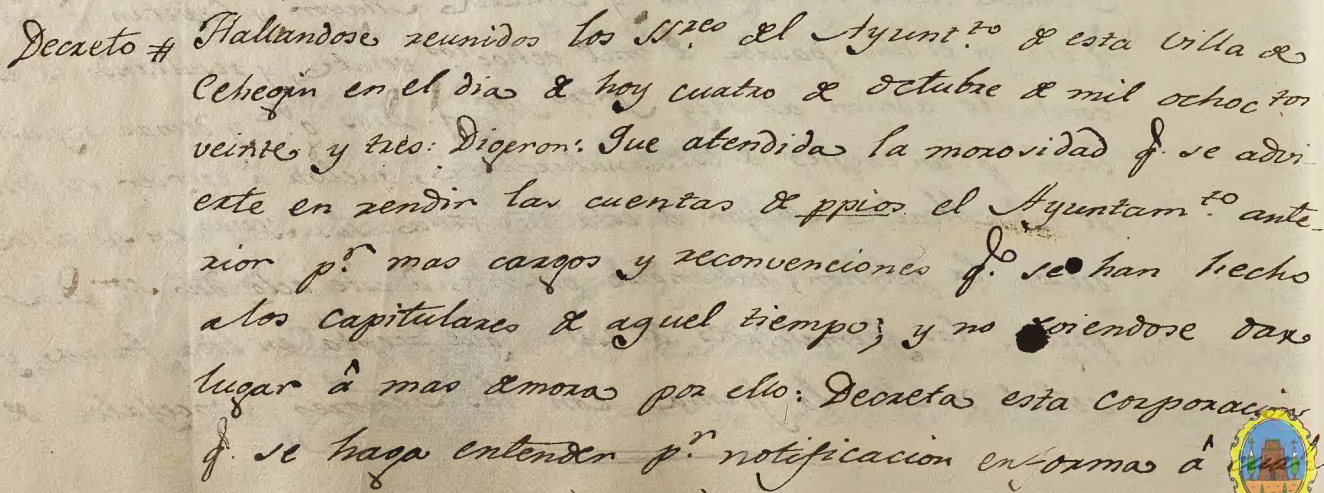 Decreto # Hallandose reunidos los SSres del Ayuntto de esta Villa de
Cehegin en el dia de hoy cuatro de octubre de mil ochoctos
veinte y tres: Digeron: Que atendida la morosidad q. se advi
erte en rendir las cuentas de ppios el Ayuntamto ante-
rior pr. mas cargos y reconvenciones q. se han hecho
a los capitulares de aquel tiempo; y no dar
lugar â mas demora por ello: Decreta esta corporacion
q. se haga entender pr. notificacion en forma â